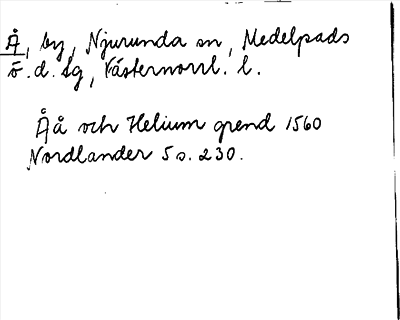 Å, by, Njurunda sn, Medelpads
ö. d. tg, Västernorrl. l.
Åå och Helium grend 1560
Nordlander 5 s. 230.